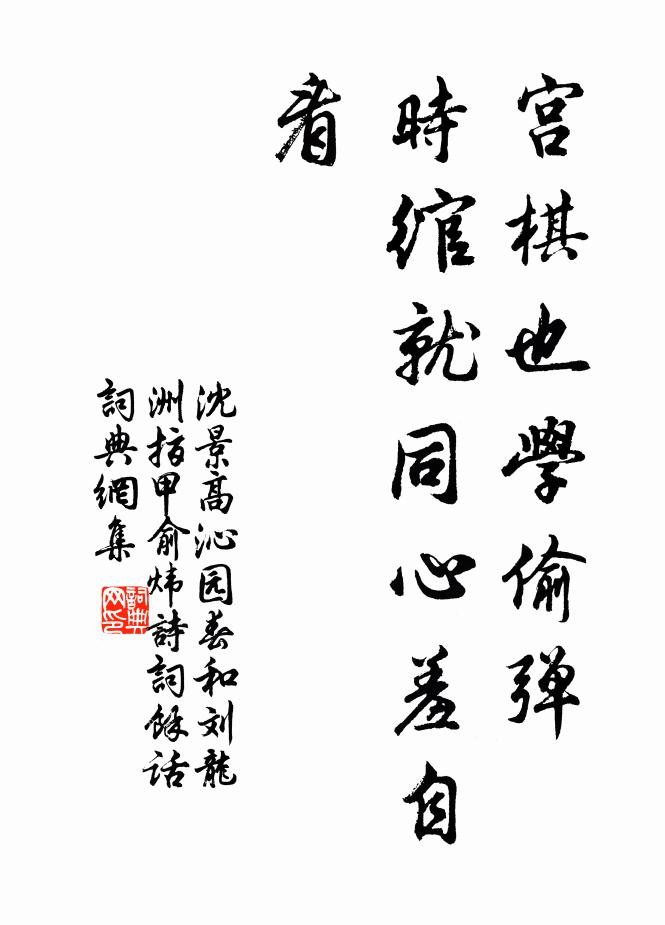 宮棋也學偷弹
時綰就同心羞自
看
沈景高沁园春和刘龍
洲指甲俞炜詩詞餘话
詞典網集
詞典
网印